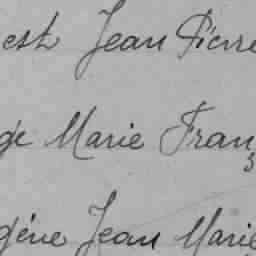 est Jean Pierre
ge Marie Franç
gène Jean Marie